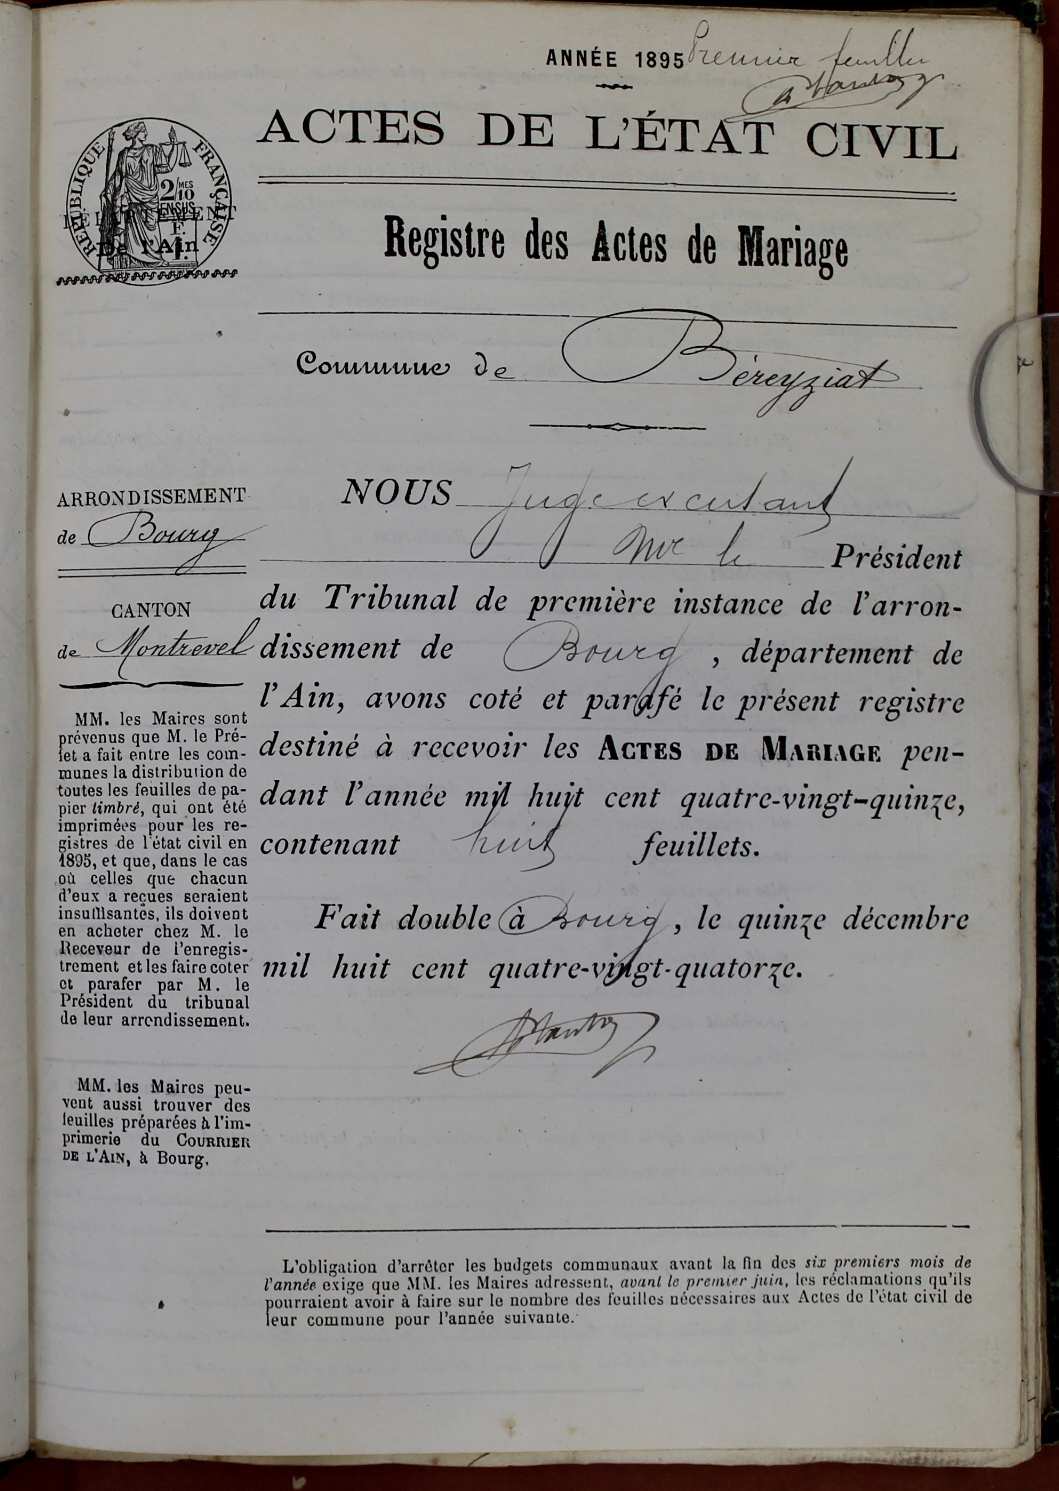 ANNÉE 1895 Premier feuillet
ACTES DE L'ÉTAT CIVIL
RÉPUBLIQUE FRANÇAISE
2/10 MES
EN SUS
DÉPARTEMENT
De l'Ain
Registre des Actes de Mariage
Commune de Béreyziat
ARRONDISSEMENT
de Bourg
CANTON
de Montrevel
MM. les Maires sont
prévenus que M. le Pré-
fet a fait entre les com-
munes la distribution de
toutes les feuilles de pa-
pier timbré, qui ont été
imprimées pour les re-
gistres de l'état civil en
1895, et que, dans le cas
où celles que chacun
d'eux a reçues seraient
insuffisantes, ils doivent
en acheter chez M. le
Receveur de l'enregis-
trement et les faire coter
et parafer par M. le
Président du tribunal
de leur arrondissement.
MM. les Maires peu-
vent aussi trouver des
feuilles préparées à l'im-
primerie du COURRIER
DE L'AIN, à Bourg.
NOUS Juge
Mr le Président
du Tribunal de première instance de l'arron-
dissement de Bourg, département de
l'Ain, avons coté et parafé le présent registre
destiné à recevoir les ACTES DE MARIAGE pen-
dant l'année mil huit cent quatre-vingt-quinze,
contenant huit feuillets.
Fait double à Bourg, le quinze décembre
mil huit cent quatre-vingt-quatorze.
L'obligation d'arrêter les budgets communaux avant la fin des six premiers mois de
l'année exige que MM. les Maires adressent, avant le premier juin, les réclamations qu'ils
pourraient avoir à faire sur le nombre des feuilles nécessaires aux Actes de l'état civil de
leur commune pour l'année suivante.